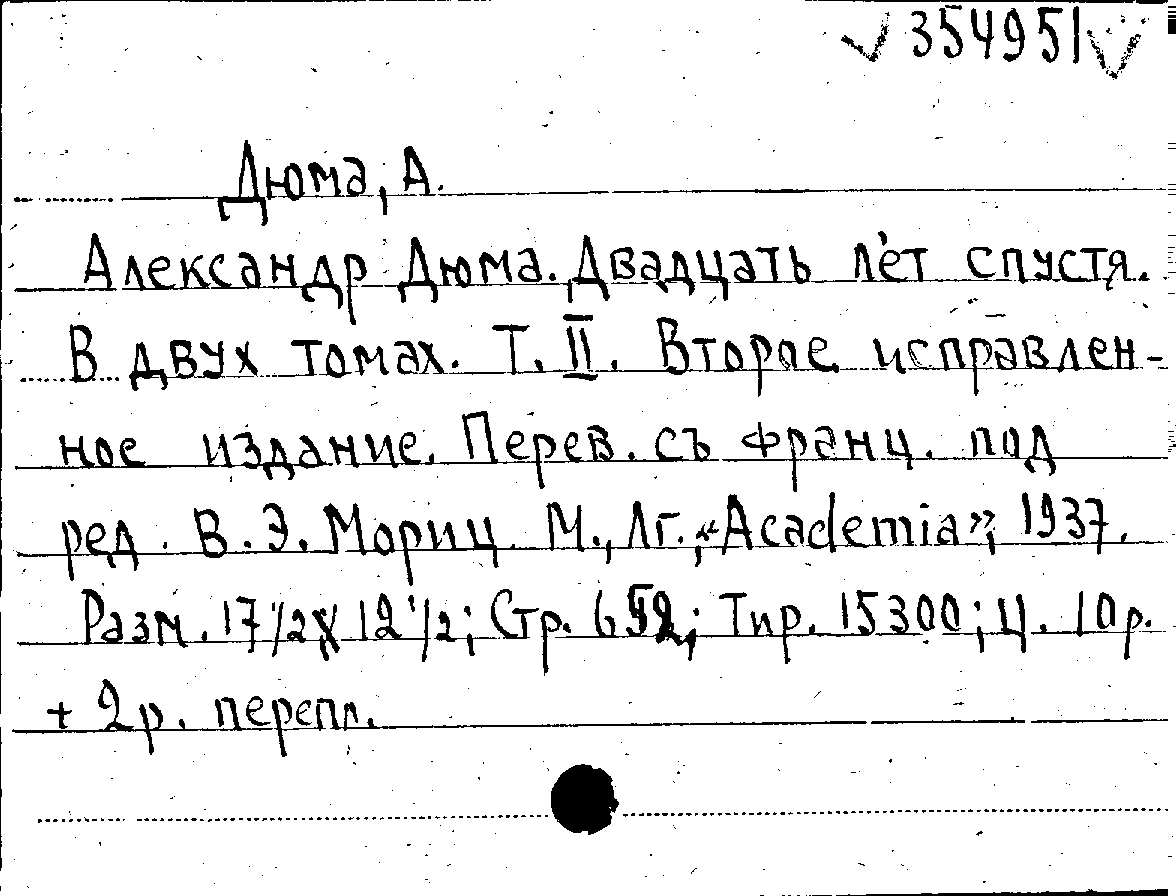 354951
Дюма, А.
Александр Дюма. Двадцать лет спустя.
В двух томах. Т. II. Второе исправлен-
ное издание. Перев. съ франц. под
ред. В. Э. Мориц. М., Лг., „Academia”, 1937.
Разм. 17 1/2 X 12 1/2; Стр. 652; Тир. 15300; Ц. 10 р.
+ 2 р. перепл.